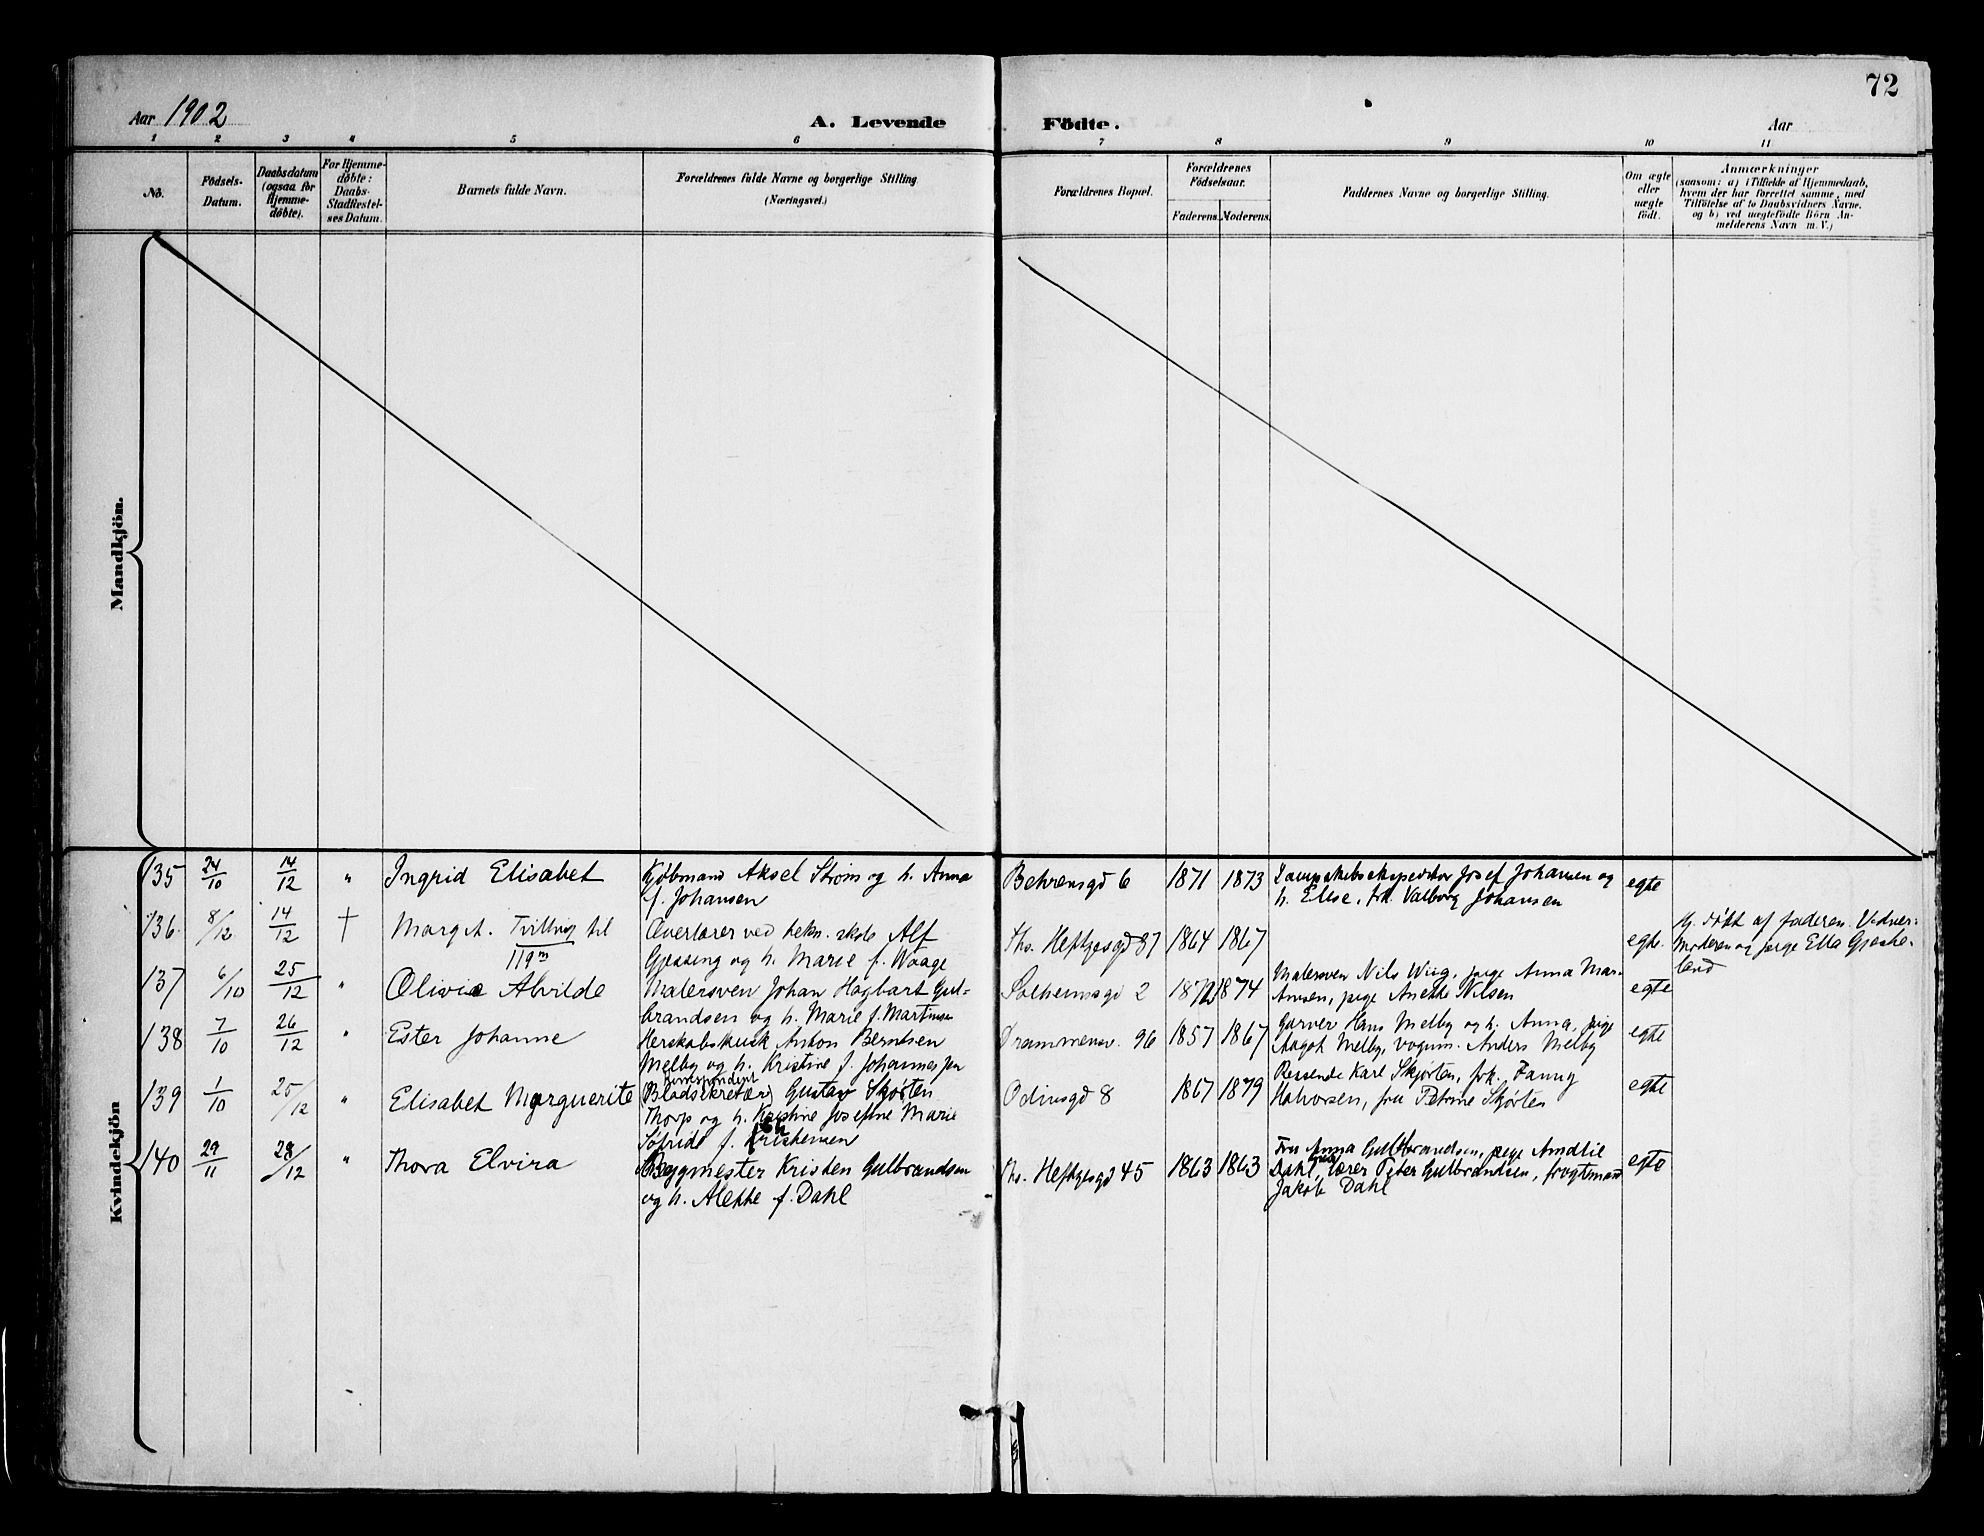 72
Aar 1902 A. Levende Födte. Aar
1 2 3 4 5 6 7 8 9 10 11
Nö. Födsels-Datum. Daabsdatum (ogsaa for Hjemme-döbte). For Hjemme-döbte: Daabs-Stadfæstel-ses Datum. Barnets fulde Navn. Forældrenes fulde Navne og borgerlige Stilling. (Næringsvei.) Forældrenes Bopæl. Forældrenes Födselsaar. Faderens. Moderens. Faddernes Navne og borgerlige Stilling. Om ægte eller uægte födt. Anmærkninger (saasom: a) i Tilfælde af Hjemmedaab, hvem der har forrettet samme, med Tilföielse af to Daabsvidners Navne. og b) ved uægtefödte Börn An-melderens Navn m. V.)
Mandkjön.
Kvindekjön
135 24/10 14/12 " Ingrid Elisabet Kjøbmand Aksel Strøm og h. Anna Behrensgd 6 1871 1873 Josef Johansen og egte
f. Johansen h. Elise, frk. Valborg Johansen
136. 8/12 14/12 † Margit. Tvilling til Overlærer ved tekn. skole Alf Ths. Heftyesgd 87 1864 1867 egte. Hj. døbt af faderen. Vidner:
119 m Gjessing og h. Marie f. Waage Moderen og pige Ella
137 6/10 25/12 " Olivie Alvilde Malersven Johan Hagbart Gul- Solheimsgd 2 1874 Malersven Nils Wiig, pige Anna Mar- egte
brandsen og h. Marie f. Martinsen pige Anette Nilsen
138 7/10 26/12 " Ester Johanne Herskabskusk Anton Berntsen Drammensv. 96 1857 1867 Garver Hans Melby og h. Anna, pige egte
Melby og h. Kristine f. Johannessen Aagot Melby, vognm. Anders Melby
139 1/10 25/12 " Elisabet Marguerite (Bladsekretær) Gustav Skjørten Odinsgd 8 1867 1879 Reisende Karl Skjørten, frk. Fanny egte
Thorp og h. Kristine Josefine Marie Halvorsen, fru Petrine Skjørten
Sofride f. Kristensen
140 29/11 28/12 " Thora Elvira Bygmester Kristen Gulbrandsen Ths. Heftyesgd 45 1863 1863 Fru Anna Gulbrandsen, pige Amalie egte
og h. Alette f. Dahl Dahl, lærer Peter Gulbrandsen, frugtmand
Jakob Dahl